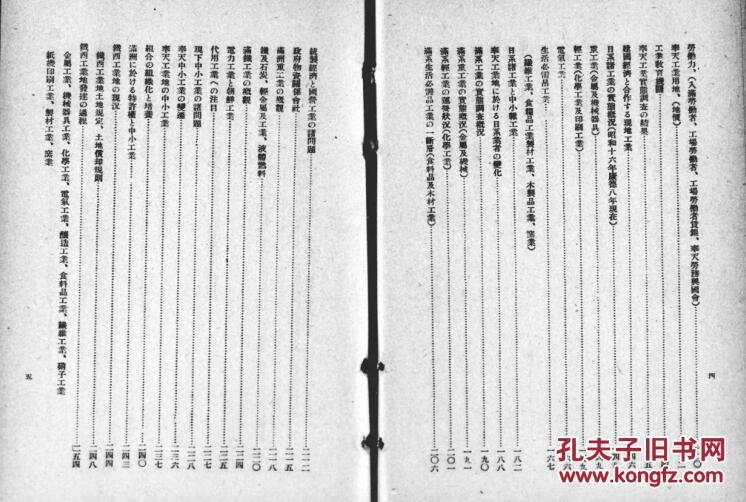 勞働力、(入滿勞働者、工場勞働者、工場勞働者賃銀、奉天勞務興國會)
奉天工業用地、(地價)
工業教育機關
奉天工業實態調査の結果
建國經濟と合作する現地工業
日系諸工業の實態概況(昭和十六年康德八年現在)
重工業(金屬及機械器具)
輕工業(化學工業及印刷工業)
電氣工業
生活必需品工業 一六七
(纖維工業、食糧品工業製材工業、木製品工業、窯業)
日系諸工業と中小種工業 一八二
奉天工業地に於ける日系業者の變化 一八八
滿系工業の實態調査概況 一九〇
滿系重工業の實態概況(金屬及機械) 一九一
滿系輕工業の運營狀況(化學工業) 二〇一
滿系生活必需品工業の一斷層(食料品及木材工業) 二〇六
四
統制經濟と國營工業の諸問題 二一二
政府物資關係會社 二一五
滿洲重工業の概觀 二一八
鐵及石炭、輕金屬及工業、液體燃料 二二〇
滿鐵工業の概觀 二二四
電力工業と朝鮮工業
代用工業への注目 二二七
現下中小工業の諸問題 二二八
奉天中小工業の變遷 二三六
奉天工業地の中小工業 二三七
組合の組織化と培養 二四〇
滿洲に於ける特許權と中小工業 二四三
鐵西工業地の現況 二四四
鐵西工業地土地規定、土地償却規則 二四八
鐵西工業地發達の過程 二五四
金屬工業、機械器具工業、化學工業、電氣工業、釀造工業、食料品工業、纖維工業、硝子工業
紙機印刷工業、製材工業、窯業
五
孔夫子旧书网
www.kongfz.com